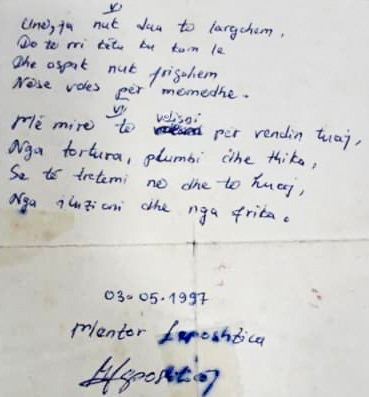 VI
Unë, ja nuk dua to largohem,
Do të rri këtu ku kam le
Dhe aspak nuk frigohem
Nëse vdes për mëmëdhe.
VII
Më mirë to vdisni për vendin tuaj,
Nga tortura, plumbi dhe thika,
Se të tretemi në dhe to huaj,
Nga iluzioni dhe nga frika.
03-05-1997
Mentor Leposhtica